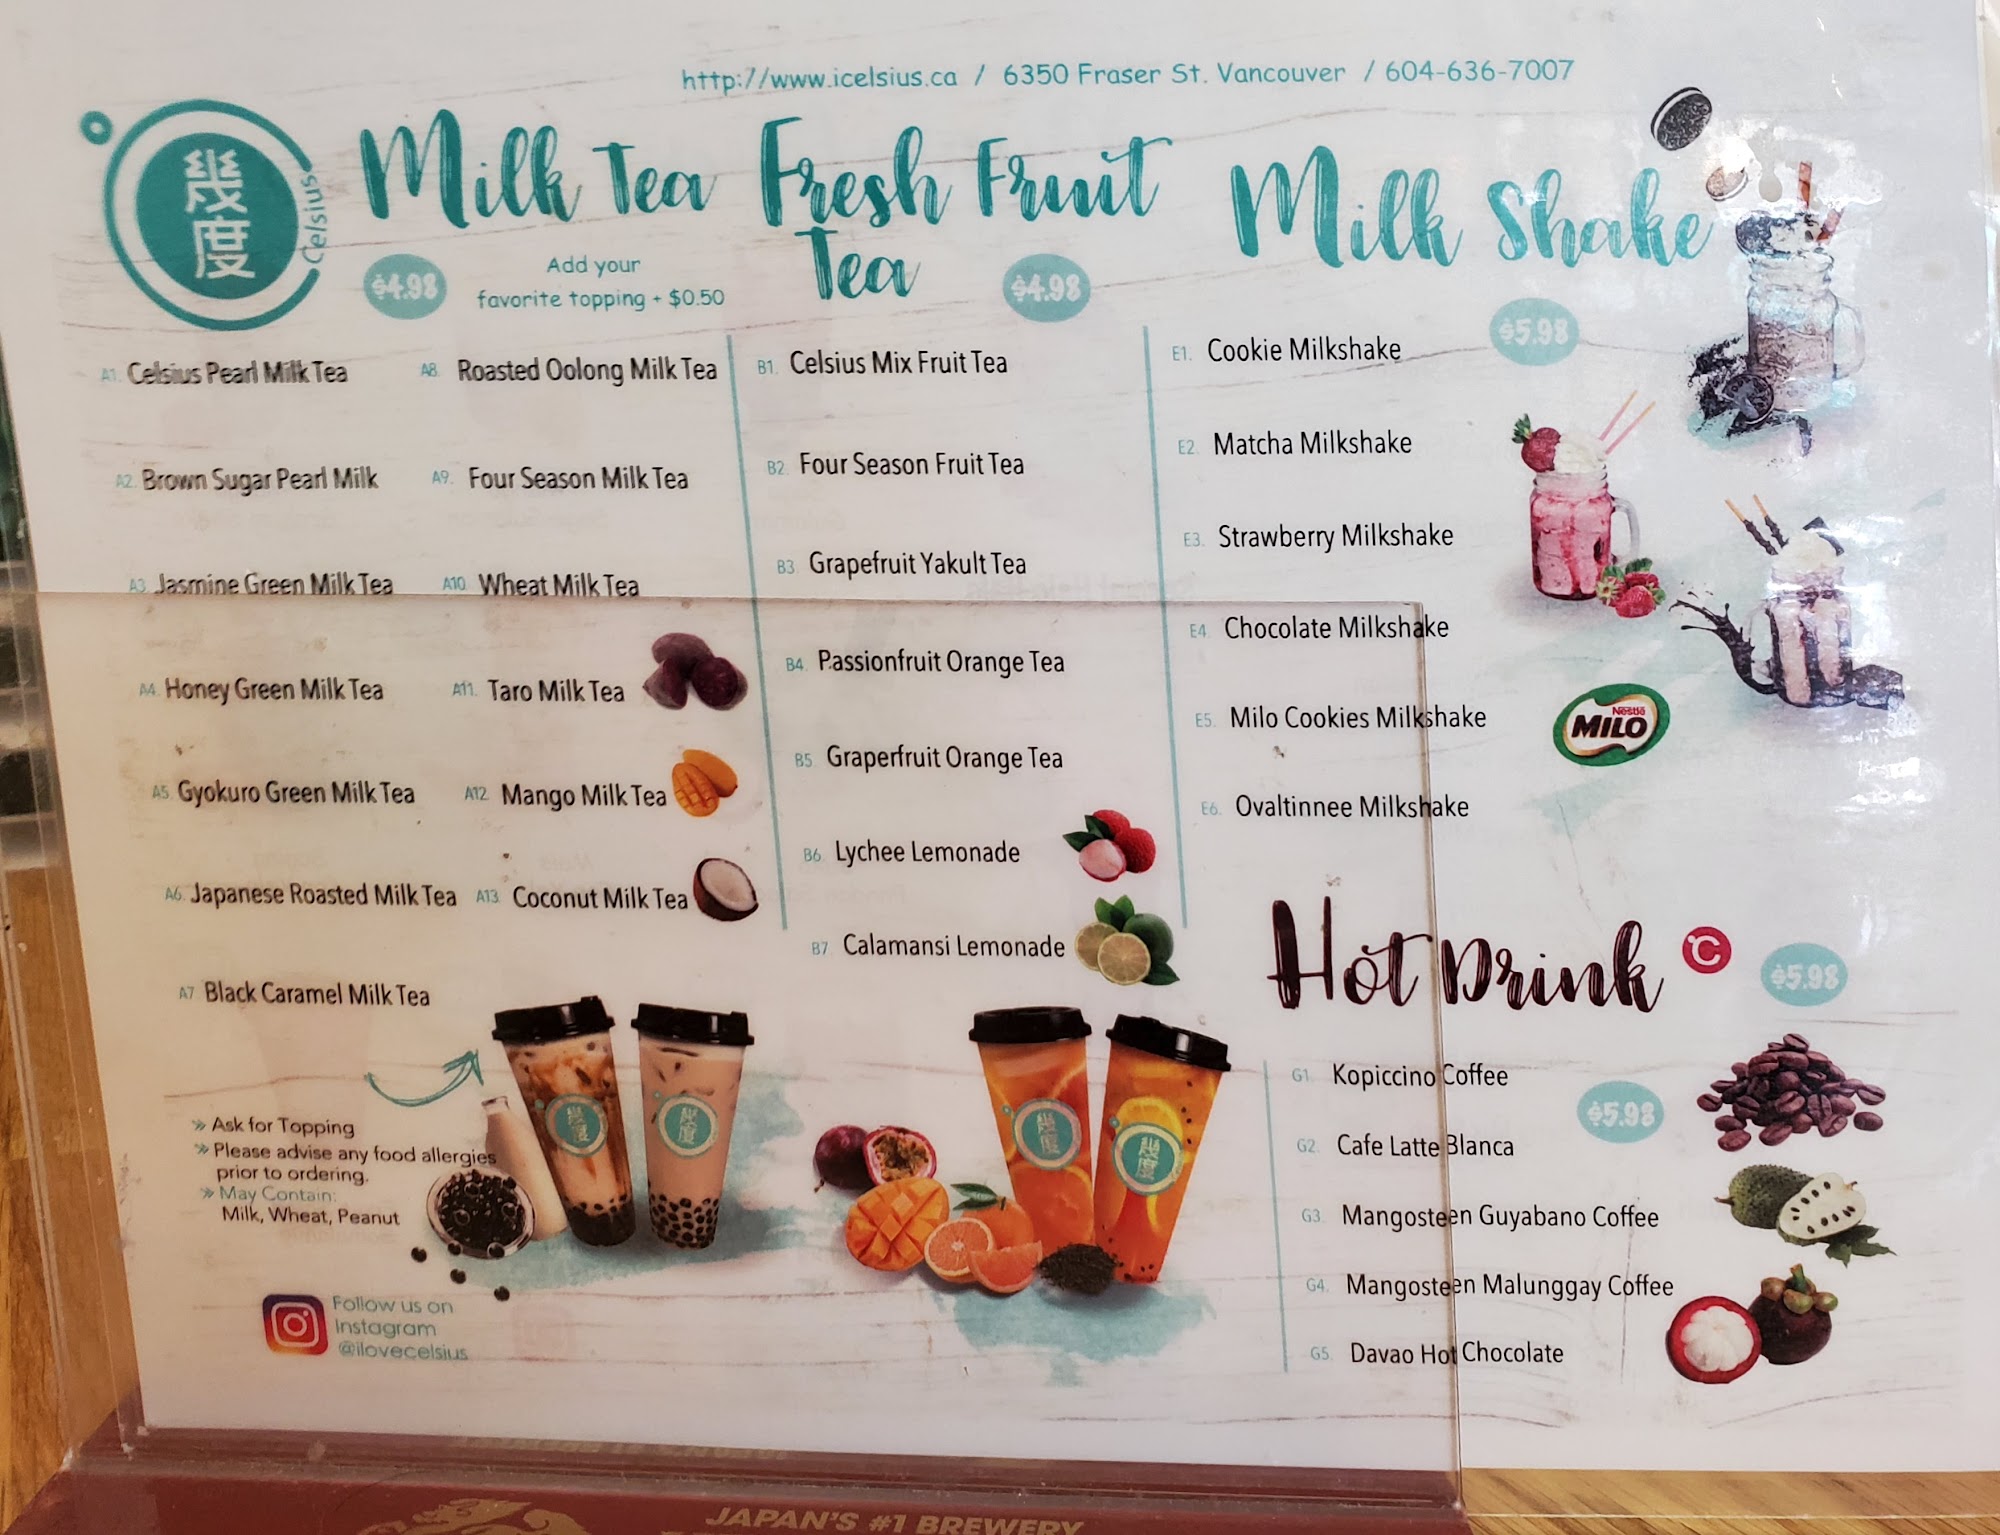 http://www.icelsius.ca / 6350 Fraser St. Vancouver / 604-636-7007
幾度
Celsius
Milk Tea
$4.98
Add your
favorite topping + $0.50
A1. Celsius Pearl Milk Tea
A2. Brown Sugar Pearl Milk
A3. Jasmine Green Milk Tea
A4. Honey Green Milk Tea
A5. Gyokuro Green Milk Tea
A6. Japanese Roasted Milk Tea
A7. Black Caramel Milk Tea
A8. Roasted Oolong Milk Tea
A9. Four Season Milk Tea
A10. Wheat Milk Tea
A11. Taro Milk Tea
A12. Mango Milk Tea
A13. Coconut Milk Tea
Fresh Fruit
Tea
$4.98
B1. Celsius Mix Fruit Tea
B2. Four Season Fruit Tea
B3. Grapefruit Yakult Tea
B4. Passionfruit Orange Tea
B5. Graperfruit Orange Tea
B6. Lychee Lemonade
B7. Calamansi Lemonade
Milk Shake
$5.98
E1. Cookie Milkshake
E2. Matcha Milkshake
E3. Strawberry Milkshake
E4. Chocolate Milkshake
E5. Milo Cookies Milkshake
Nestlé
MILO
E6. Ovaltinnee Milkshake
Hot Drink
C
$5.98
G1. Kopiccino Coffee
$5.98
G2. Cafe Latte Blanca
G3. Mangosteen Guyabano Coffee
G4. Mangosteen Malunggay Coffee
G5. Davao Hot Chocolate
» Ask for Topping
» Please advise any food allergies
prior to ordering.
» May Contain:
Milk, Wheat, Peanut
幾度
幾度
幾度
幾度
Follow us on
Instagram
@ilovecelsius
JAPAN'S #1 BREWERY